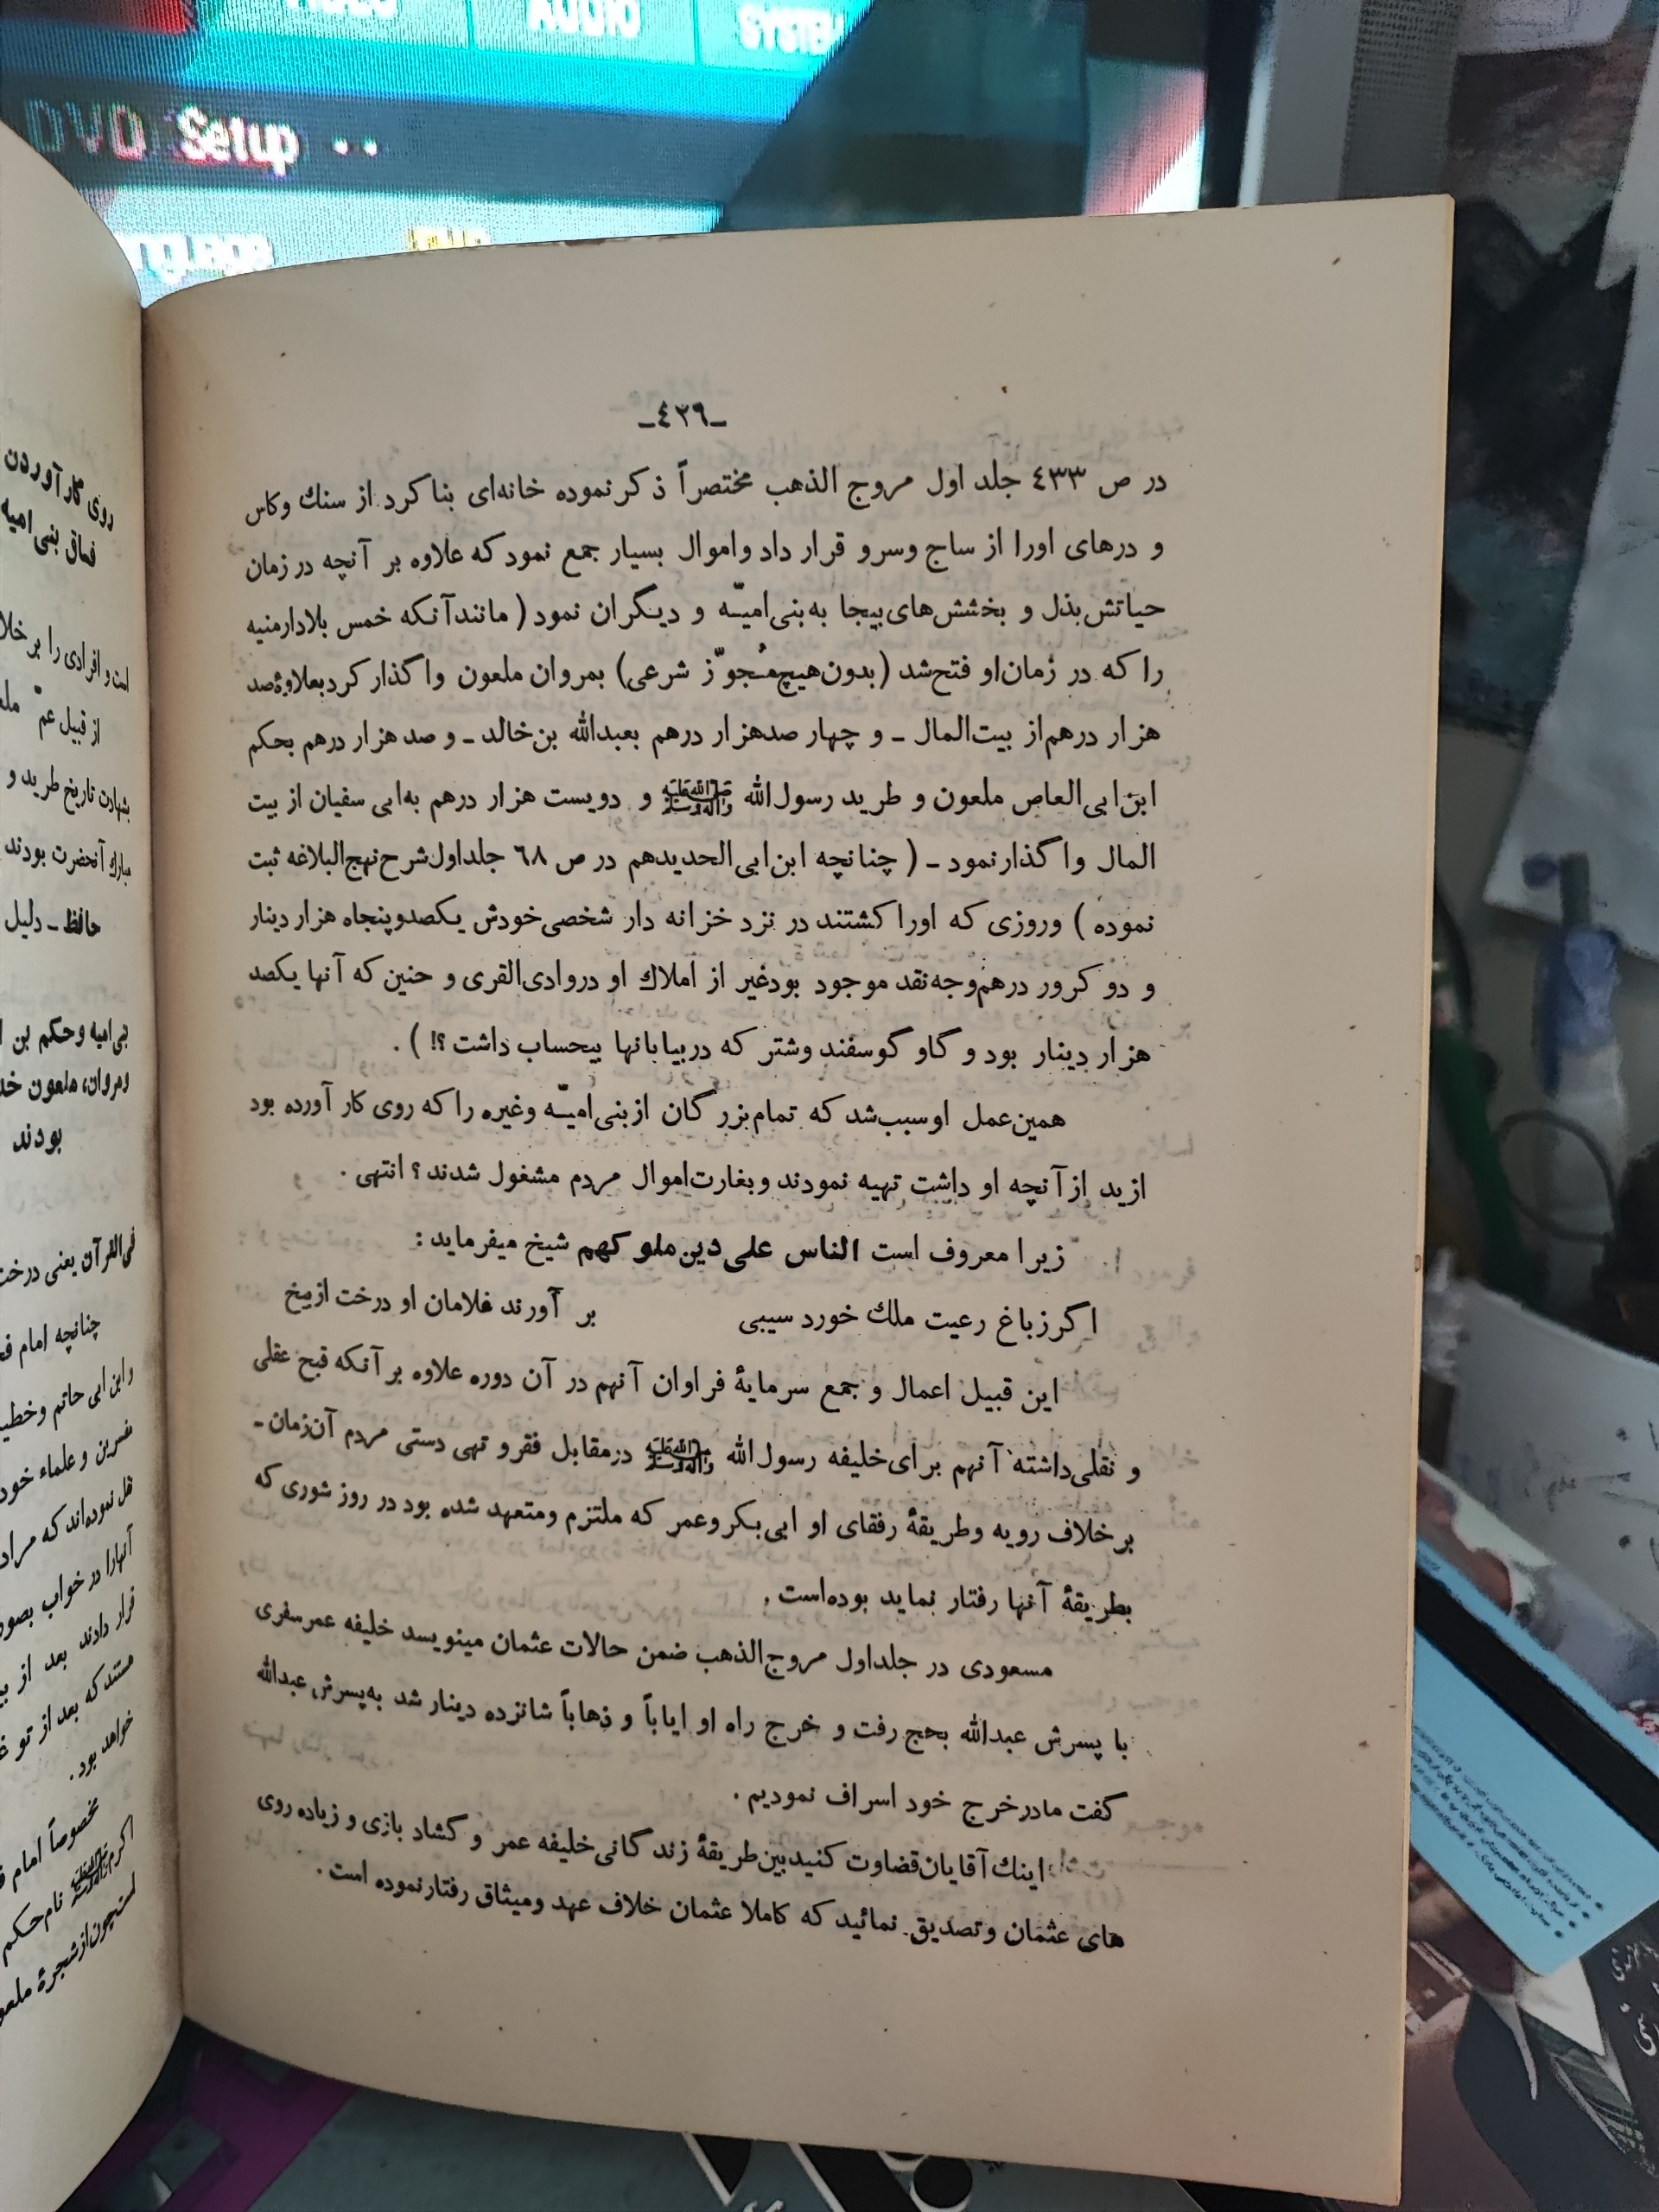 AUDIO
SYSTEM
DVD Setup ..
-٤٢٩-
در ص ٤٣٣ جلد اول مروج الذهب مختصراً ذکرنموده خانه‌ای بنا کرد از سنك وکاس
و درهای اورا از ساج وسرو قرار داد واموال بسیار جمع نمود که علاوه بر آنچه در زمان
حیاتش بذل و بخشش‌های بیجا به‌بنی‌امیّه و دیگران نمود ( مانندآنکه خمس بلادارمنیه
را که در زمان‌او فتح‌شد (بدون‌هیچ‌مُجوّز شرعی) بمروان ملعون واگذار کردبعلاوۀصد
هزار درهم‌از بیت‌المال ـ و چهار صدهزار درهم بعبدالله بن‌خالد ـ و صد هزار درهم بحکم
ابن‌ابی‌العاص ملعون و طرید رسول‌الله ﷺ و دویست هزار درهم به‌ابی سفیان از بیت
المال واگذارنمود ـ ( چنانچه ابن‌ابی‌الحدیدهم در ص ٦٨ جلداول‌شرح‌نهج‌البلاغه ثبت
نموده ) وروزی که اوراکشتند در نزد خزانه دار شخصی‌خودش یکصدوپنجاه هزار دینار
و دو کرور درهم‌وجه‌نقد موجود بودغیر از املاك او دروادی‌القری و حنین که آنها یکصد
هزار دینار بود و گاو گوسفند وشتر که دربیابانها بیحساب داشت ؟! ) .
همین‌عمل اوسبب‌شد که تمام‌بزرگان ازبنی‌امیّه وغیره راکه روی کار آورده بود
ازید ازآنچه او داشت تهیه نمودند وبغارت‌اموال مردم مشغول شدند ؟ انتهی .
زیرا معروف است الناس علی دین‌ملوکهم شیخ میفرماید :
اگرزباغ رعیت ملك خورد سیبی بر آورند غلامان او درخت ازبیخ
این قبیل اعمال و جمع سرمایۀ فراوان آنهم در آن دوره علاوه بر آنکه قبح عقلی
و نقلی‌داشته آنهم برای‌خلیفه رسول‌الله ﷺ درمقابل فقرو تهی دستی مردم آن‌زمان-
برخلاف رویه وطریقۀ رفقای او ابی‌بکروعمر که ملتزم ومتعهد شده بود در روز شوری که
بطریقۀ آنها رفتار نماید بوده‌است .
مسعودی در جلداول مروج‌الذهب ضمن حالات عثمان مینویسد خلیفه عمرسفری
با پسرش عبدالله بحج رفت و خرج راه او ایاباً و ذهاباً شانزده دینار شد به‌پسرش عبدالله
گفت مادرخرج خود اسراف نمودیم .
اینك آقایان‌قضاوت کنیدبین‌طریقۀ زندگانی‌خلیفه عمر و گشاد بازی و زیاده روی
های عثمان وتصدیق نمائید که کاملا عثمان خلاف عهد ومیثاق رفتارنموده است .
روی کار آوردن
فساق بنی امیه
از قبیل عمّ
بشهادت تاریخ طرید و
مبارك آنحضرت بودند
حافظ ـ دلیل
بنی‌امیه وحکم بن
ومروان، ملعون
بودند
فی‌القرآن یعنی درخت
چنانچه امام
وابن ابی حاتم وخطیب
مفسرین وعلماء خود
نقل نموده‌اند که مراد
آنهارا در خواب
قرار دادند بعد از
هستند که بعد از تو
خواهد بود .
مخصوصاً امام
اکرم ﷺ نام حکم
است‌چون‌ازشجرۀ